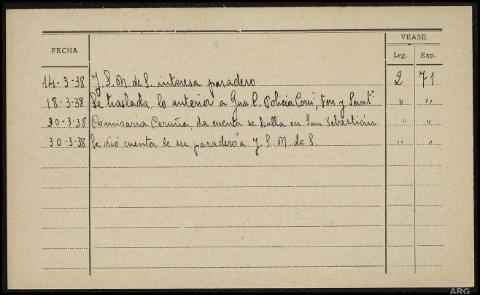 VEASE
FECHA Leg. Exp.
14-3-38 J. S. M. de S. interesa paradero 2 71
18-3-38 Se traslada lo anterior a Gua C. Policia Coru, y Sant " "
30-3-38 Comisaria Coruña, da cuenta se halla en San Sebastián " "
30-3-38 Se dió cuenta de su paradero a J. S. M. de S. " "
ARG